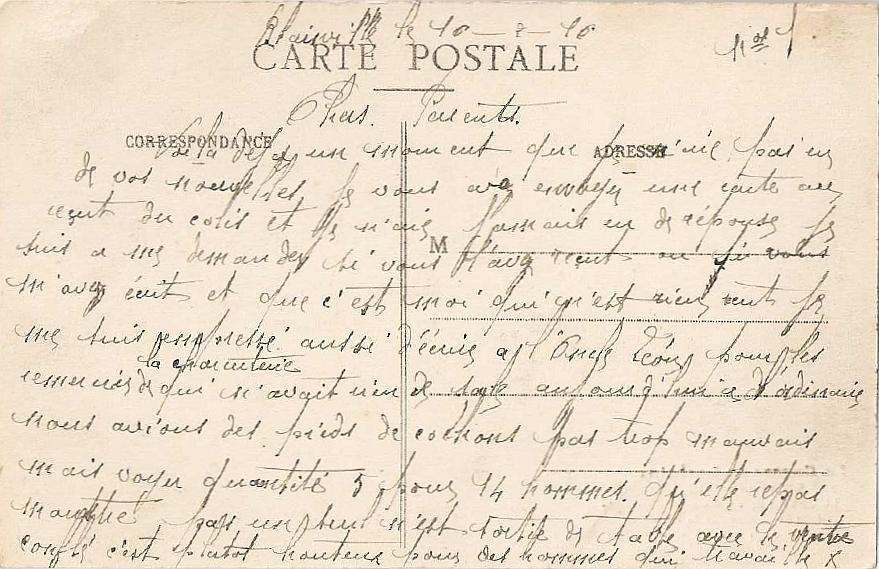 Blainville le 10-2-16
n° 1
CARTE POSTALE
Chers Parents.
CORRESPONDANCE
ADRESSE
Voila deja un moment que je n'aie pas eu
de vos nouvelles je vous are envoyer une carte avez
reçut du colis et je n'aie jamais eu de réponse je
M
suis a me demander si vous l'avez reçut ou si vous
m'avez écrit et que c'est moi qui n'est rien reçut je
me suis empressé aussi d'écrire a l'Oncle Léon pour les
la charcuterie
remerciés de qui n'avait rien de sale aujourd'hui a d'ordinaire
nous avions des pieds de cochons pas trop mauvais
mais voyer quantité 5 pour 14 hommes. qu'elle repas
pas un seul n'est sortie de table avec le ventre
c'est plutot honteux pour des hommes qui travaille x